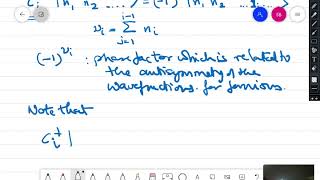 c_i | n_1 n_2 ..... ⟩ = (-1)
ν_i = Σ_{j=1}^{i-1} n_i
(-1)^{ν_i} : phase factor which is related
to the antisymmetry of the
wavefunctions for fermions.
Note that
c_i^+ |